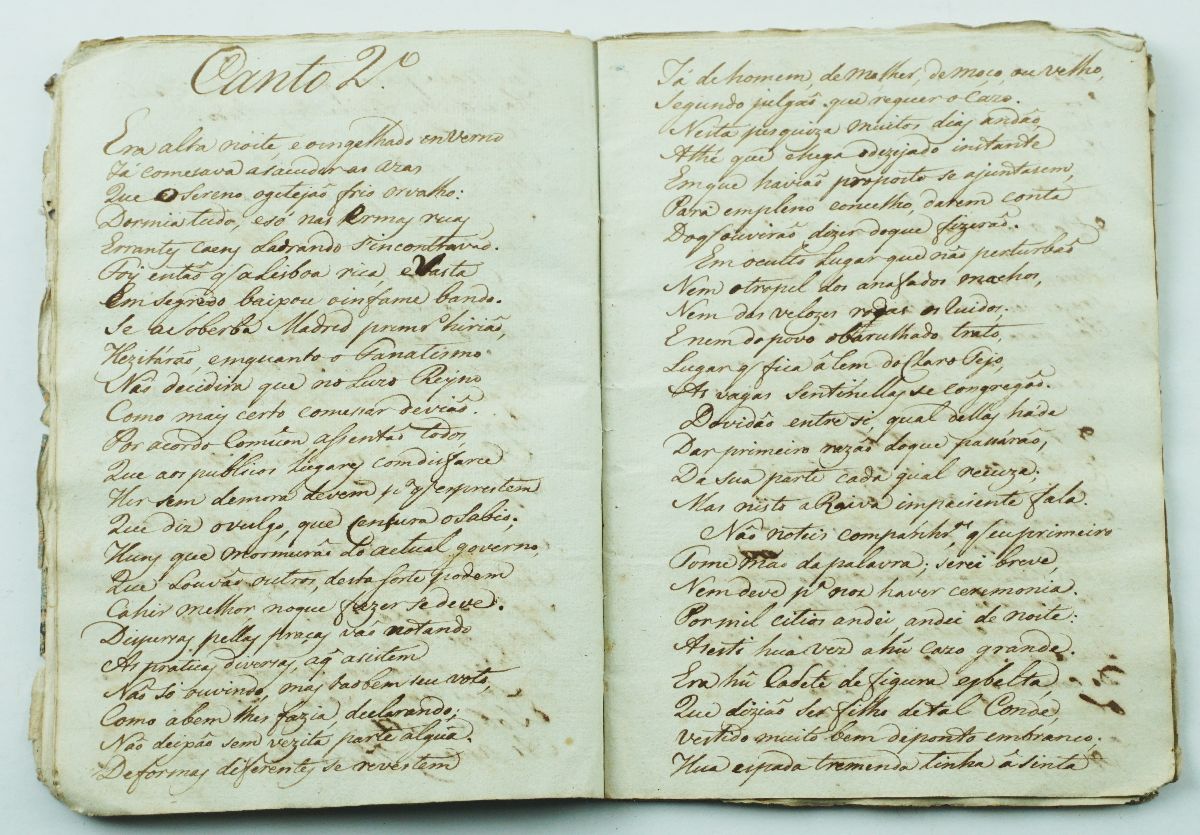 Canto 2.º
Era alta noite, e o engelhado enverno
Já comesava a sacudir as azas
Que o sereno gotejão frio orvalho:
Dormia tudo, e só nas Ermas ruas
Errantes caens Ladrando s'incontravão.
Foy então q̃ a Lisboa rica, e Vasta
Em segredo baixou o infame bando.
Se a soberba Madrid primr.º hirião,
Hezitárão, emquanto o Fanatismo
Não decidira que no Luzo Reyno
Como mais certo comesar devião.
Por acordo Comũm assentão todos,
Que aos publicos lugares com disfarce
Hir sem demora devem, p.ª q̃ exprestem
Que diz o vulgo, que Censura o Sabio.
Huns que mormurão do actual governo,
Que Louvão outros, desta sorte podem
Cahir melhor no que fazer se deve.
Dispersas pellas praças vão notando
As praticas diversas, a q̃ asistem
Não só ouvindo, mas tãobem seu voto,
Como a bem lhes fazia, declarando;
Não deixão sem vezita parte algũa.
De formas diferentes se revestem
Já de homem, de molher, de moço, ou velho,
Segundo julgão que requer o Cazo.
Nesta pesquiza muitos dias andão,
Athé que chega o dezijado instante
Em que havião proposto se ajuntarem,
Para em pleno concelho darem conta
Do q̃ ouvirão dizer do que fizerão.
Em oculto Lugar que não perturbão
Nem o tropel dos anafados machos,
Nem das velozes rodas os ruidos.
E nem do povo o barulhado trato,
Lugar q̃ fica álem do Claro Tejo,
As vagas Sentinellas se congregão.
Dovidão entre si, qual dellas hade
Dar primeiro razão do que passárão,
Da sua parte cada qual recuza;
Mas nisto a Raiva impaciente fala.
Não noteis companhr.as q̃ eu primeiro
Tome mão da palavra; serei breve,
Nem deve p.ª nos haver ceremonia.
Por mil citios andei, andei de noite:
Asesti hũa vez a hũ cazo grande.
Era hũ Cadete de figura esbelta,
Que dizião ser filho de tal Conde,
Vestido muito bem de ponto em branco,
Hua espada tremenda tinha á sinta